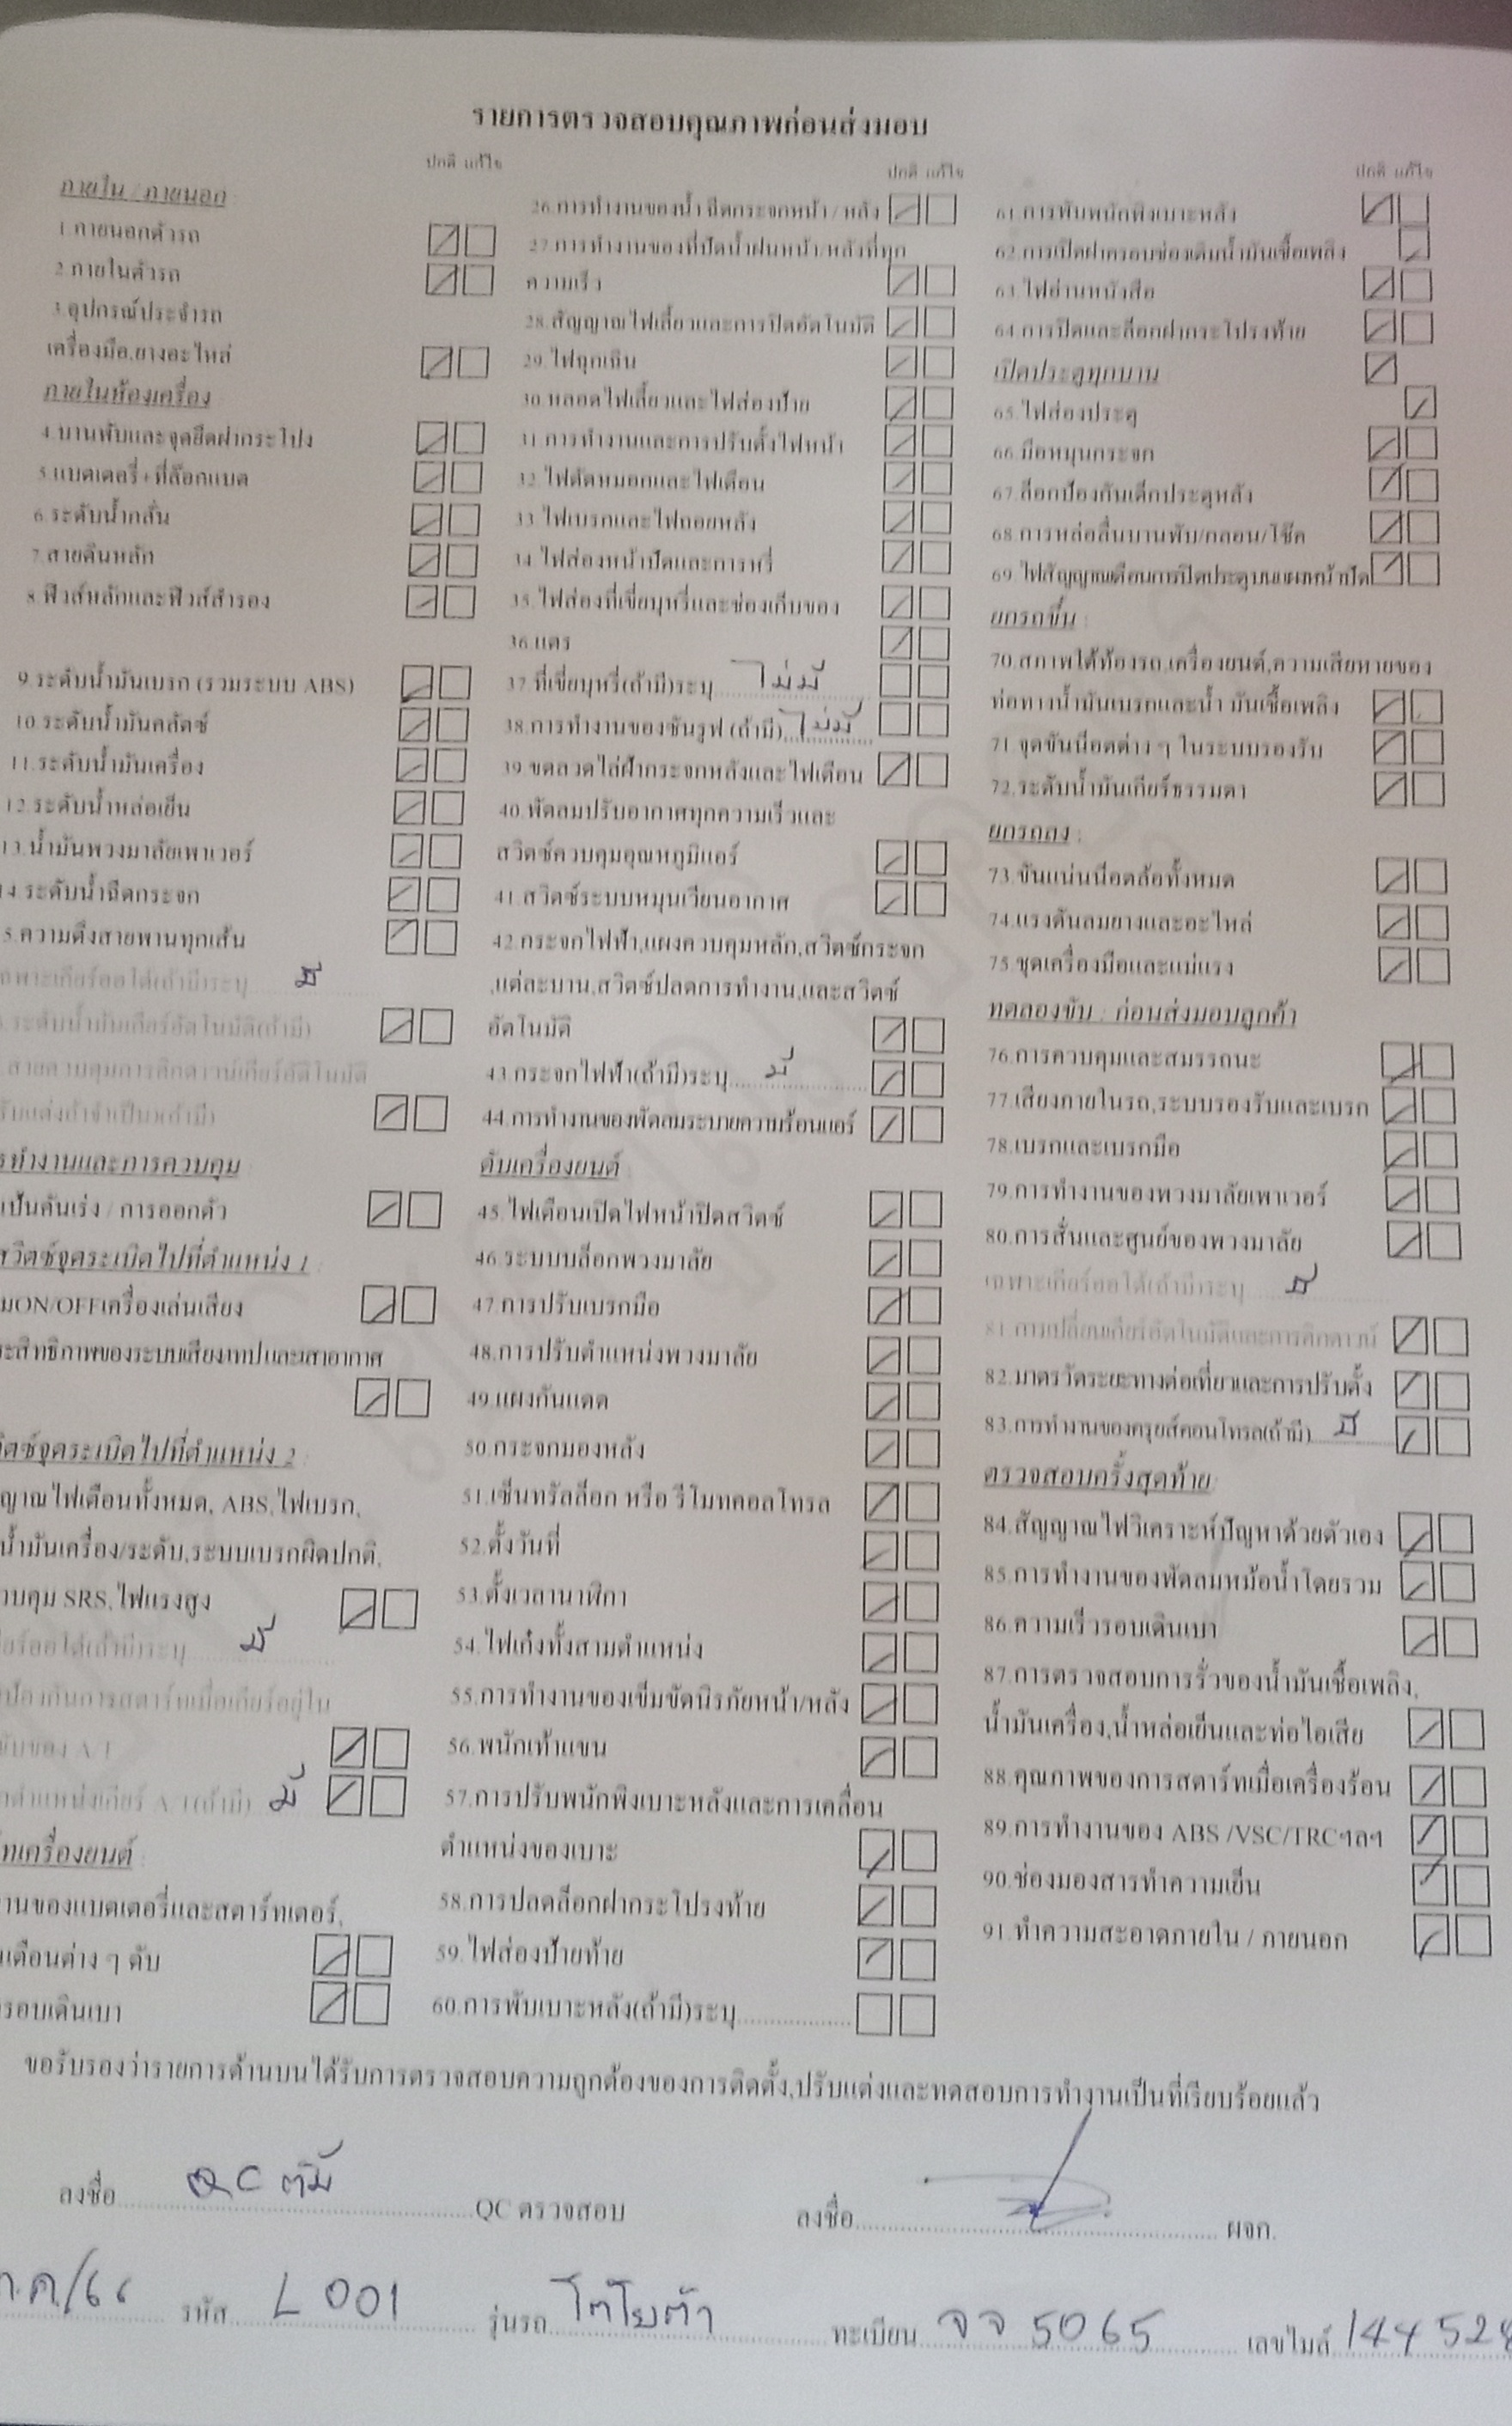 รายการตรวจสอบคุณภาพก่อนส่งมอบ
ปกติ แก้ไข
ภายใน / ภายนอก :
1.ภายนอกตัวรถ
2.ภายในตัวรถ
3.อุปกรณ์ประจำรถ
เครื่องมือ,ยางอะไหล่
ภายในห้องเครื่อง
4.บานพับและจุดยึดฝากระโปง
5.แบตเตอรี่+ที่ล๊อกแบต
6.ระดับน้ำกลั่น
7.สายดินหลัก
8.ฟิวส์หลักและฟิวส์สำรอง
9.ระดับน้ำมันเบรก (รวมระบบ ABS)
10.ระดับน้ำมันคลัตช์
11.ระดับน้ำมันเครื่อง
12.ระดับน้ำหล่อเย็น
13.น้ำมันพวงมาลัยเพาเวอร์
14.ระดับน้ำฉีดกระจก
5.ความตึงสายพานทุกเส้น
ฉพาะเกียร์ออโต้(ถ้ามี)ระบุ มี
.ระดับน้ำมันเกียร์อัตโนมัติ(ถ้ามี)
.สายควบคุมการคิกดาวน์เกียร์อัติโนมัติ
รับแต่งถ้าจำเป็น)(ถ้ามี)
รทำงานและการควบคุม
เป็นคันเร่ง / การออกตัว
สวิตซ์จุดระเบิดไปที่ตำแหน่ง 1 :
มON/OFFเครื่องเล่นเสียง
ระสิทธิภาพของระบบเสียงเทปและเสาอากาศ
ิตซ์จุดระเบิดไปที่ตำแหน่ง 2 :
ญาณไฟเตือนทั้งหมด, ABS,ไฟเบรก,
น้ำมันเครื่อง/ระดับ,ระบบเบรกผิดปกติ,
วบคุม SRS,ไฟแรงสูง
ยร์ออโต้(ถ้ามี)ระบุ มี
ป้องกันการสตาร์ทเมื่อเกียร์อยู่ใน
ขับของ A/T
ตำแหน่งเกียร์ A/T(ถ้ามี) มี
ทเครื่องยนต์ :
านของแบตเตอรี่และสตาร์ทเตอร์,
นเตือนต่าง ๆ ดับ
รอบเดินเบา
ปกติ แก้ไข
26.การทำงานของน้ำ ฉีดกระจกหน้า / หลัง
27.การทำงานของที่ปัดน้ำฝนหน้า/หลังที่ทุก
ความเร็ว
28.สัญญาณไฟเลี้ยวและการปิดอัตโนมัติ
29.ไฟฉุกเฉิน
30.หลอดไฟเลี้ยวและไฟส่องป้าย
31.การทำงานและการปรับตั้งไฟหน้า
32.ไฟตัดหมอกและไฟเตือน
33.ไฟเบรกและไฟถอยหลัง
34.ไฟส่องหน้าปัดและการหรี่
35.ไฟส่องที่เขี่ยบุหรี่และช่องเก็บของ
36.แตร
37.ที่เขี่ยบุหรี่(ถ้ามี)ระบุ ไม่มี
38.การทำงานของซันรูฟ (ถ้ามี) ไม่มี
39.ขดลวดไล่ฝ้ากระจกหลังและไฟเตือน
40.พัดลมปรับอากาศทุกความเร็วและ
สวิตซ์ควบคุมอุณหภูมิแอร์
41.สวิตซ์ระบบหมุนเวียนอากาศ
42.กระจกไฟฟ้า,แผงควบคุมหลัก,สวิตซ์กระจก
,แต่ละบาน,สวิตซ์ปลดการทำงาน,และสวิตซ์
อัตโนมัติ
43.กระจกไฟฟ้า(ถ้ามี)ระบุ มี
44.การทำงานของพัดลมระบายความร้อนแอร์
ดับเครื่องยนต์ :
45.ไฟเตือนเปิดไฟหน้าปิดสวิตซ์
46.ระบบบล็อกพวงมาลัย
47.การปรับเบรกมือ
48.การปรับตำแหน่งพวงมาลัย
49.แผงกันแดด
50.กระจกมองหลัง
51.เซ็นทรัลล็อก หรือ รีโมทคอลโทรล
52.ตั้งวันที่
53.ตั้งเวลานาฬิกา
54.ไฟเก๋งทั้งสามตำแหน่ง
55.การทำงานของเข็มขัดนิรภัยหน้า/หลัง
56.พนักเท้าแขน
57.การปรับพนักพิงเบาะหลังและการเคลื่อน
ตำแหน่งของเบาะ
58.การปลดล็อกฝากระโปรงท้าย
59.ไฟส่องป้ายท้าย
60.การพับเบาะหลัง(ถ้ามี)ระบุ
ปกติ แก้ไข
61.การพับพนักพิงเบาะหลัง
62.การเปิดฝาครอบช่องเติมน้ำมันเชื้อเพลิง
63.ไฟอ่านหนังสือ
64.การปิดและล็อกฝากระโปรงท้าย
เปิดประตูทุกบาน :
65.ไฟส่องประตู
66.มือหมุนกระจก
67.ล็อกป้องกันเด็กประตูหลัง
68.การหล่อลื่นบานพับ/กลอน/โช๊ค
69.ไฟสัญญาณเตือนการปิดประตูบนแผงหน้าปัด
ยกรถขึ้น :
70.สภาพใต้ท้องรถ,เครื่องยนต์,ความเสียหายของ
ท่อทางน้ำมันเบรกและน้ำ มันเชื้อเพลิง
71.จุดขันน๊อตต่าง ๆ ในระบบรองรับ
72.ระดับน้ำมันเกียร์ธรรมดา
ยกรถลง :
73.ขันแน่นน๊อตล้อทั้งหมด
74.แรงดันลมยางและอะไหล่
75.ชุดเครื่องมือและแม่แรง
ทดลองขับ : ก่อนส่งมอบลูกค้า
76.การควบคุมและสมรรถนะ
77.เสียงภายในรถ,ระบบรองรับและเบรก
78.เบรกและเบรกมือ
79.การทำงานของพวงมาลัยเพาเวอร์
80.การสั่นและศูนย์ของพวงมาลัย
เฉพาะเกียร์ออโต้(ถ้ามี)ระบุ มี
81.การเปลี่ยนเกียร์อัตโนมัติและการคิกดาวน์
82.มาตรวัดระยะทางต่อเที่ยวและการปรับตั้ง
83.การทำงานของครุยส์คอนโทรล(ถ้ามี) มี
ตรวจสอบครั้งสุดท้าย
84.สัญญาณไฟวิเคราะห์ปัญหาด้วยตัวเอง
85.การทำงานของพัดลมหม้อน้ำโดยรวม
86.ความเร็วรอบเดินเบา
87.การตรวจสอบการรั่วของน้ำมันเชื้อเพลิง,
น้ำมันเครื่อง,น้ำหล่อเย็นและท่อไอเสีย
88.คุณภาพของการสตาร์ทเมื่อเครื่องร้อน
89.การทำงานของ ABS /VSC/TRCฯลฯ
90.ช่องมองสารทำความเย็น
91.ทำความสะอาดภายใน / ภายนอก
ขอรับรองว่ารายการด้านบนได้รับการตรวจสอบความถูกต้องของการติดตั้ง,ปรับแต่งและทดสอบการทำงานเป็นที่เรียบร้อยแล้ว
ลงชื่อ QC ตั้ม QC ตรวจสอบ ลงชื่อ ผจก.
ค./66 รหัส L 001 รุ่นรถ โตโยต้า ทะเบียน จจ 5065 เลขไมล์ 144528